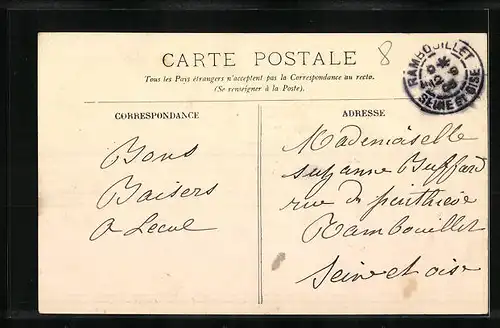 CARTE POSTALE
8
Tous les Pays étrangers n'acceptent pas la Correspondance au recto.
(Se renseigner à la Poste).
RAMBOUILLET
SEINE ET OISE
CORRESPONDANCE
Bons
Baisers
ADRESSE
Mademoiselle
Suzanne Buffard
rue de penthièvre
Rambouillet
Seine et oise